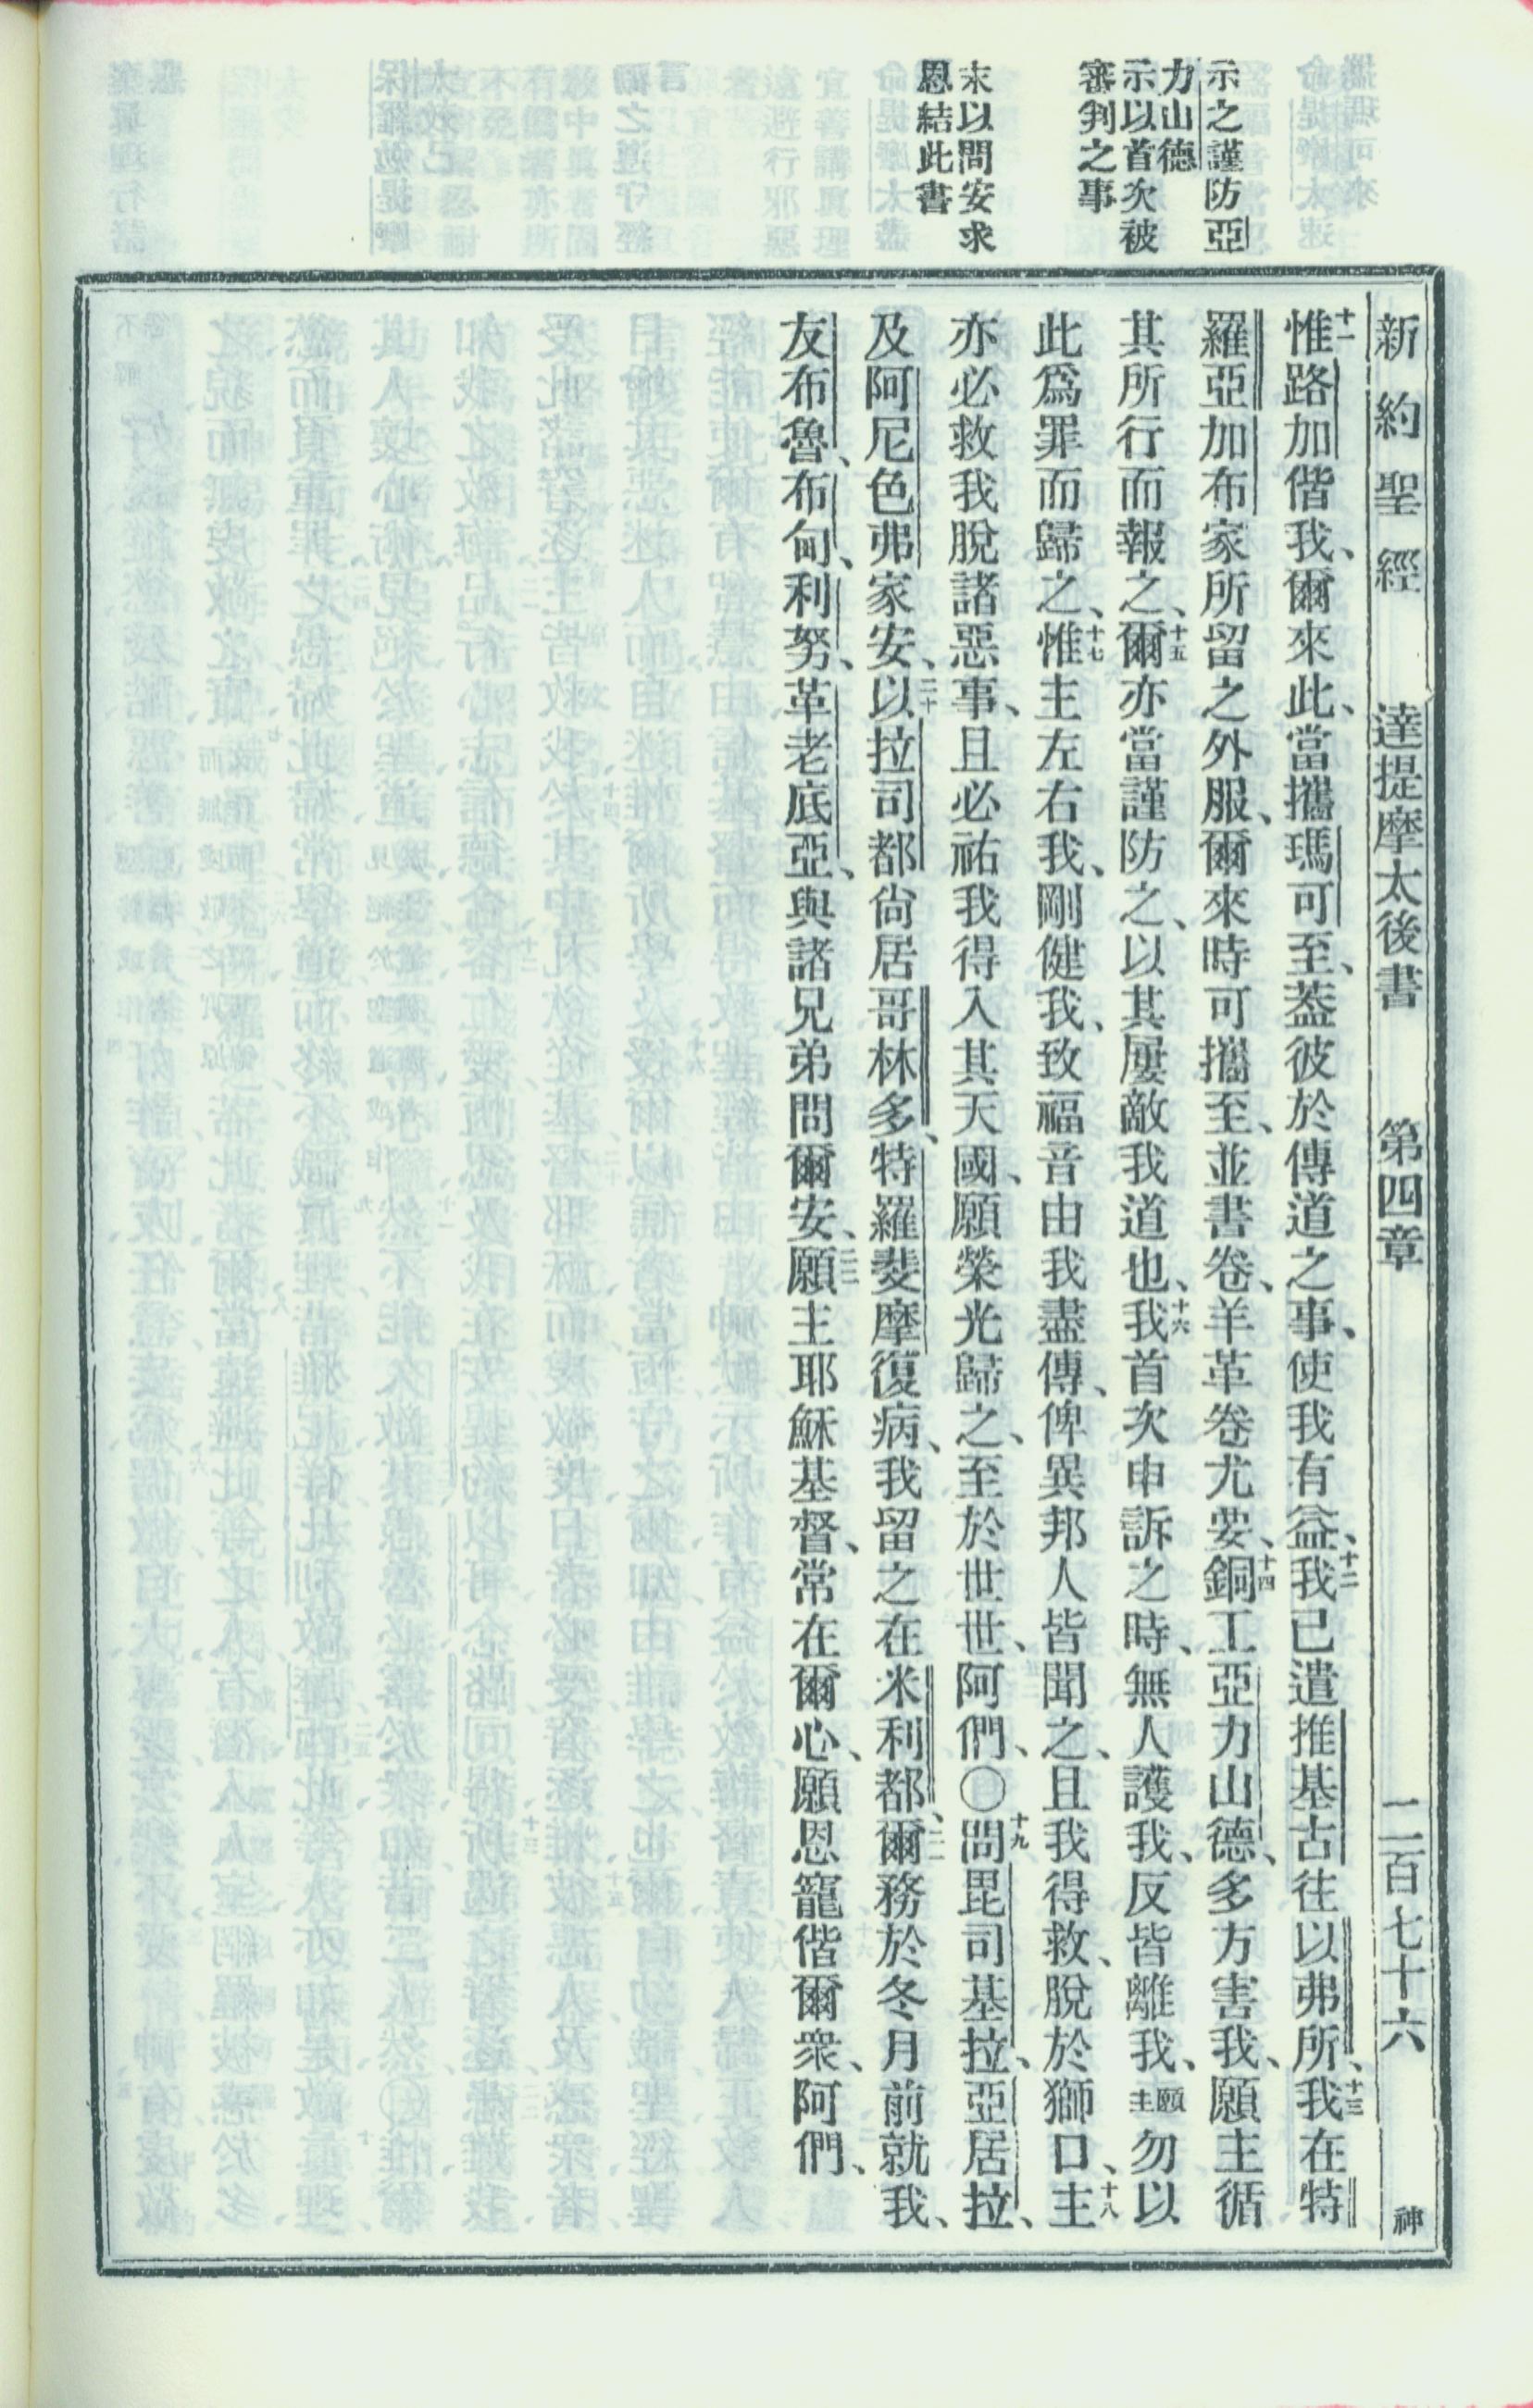 新約聖經 達提摩太後書 第四章 二百七十六 神
示之謹防亞
力山德
示以首次被
審判之事
末以問安求
恩結此書
十一惟路加偕我、爾來此、當攜瑪可至、蓋彼於傳道之事、使我有益、十二我已遣推基古往以弗所、十三我在特
羅亞加布家所留之外服、爾來時可攜至、並書卷、羊革卷尤要、十四銅工亞力山德、多方害我、願主循
其所行而報之、十五爾亦當謹防之、以其屢敵我道也、十六我首次申訴之時、無人護我、反皆離我、願主勿以
此爲罪而歸之、十七惟主左右我、剛健我、致福音由我盡傳、俾異邦人皆聞之、且我得救、脫於獅口、十八主
亦必救我脫諸惡事、且必祐我得入其天國、願榮光歸之、至於世世、阿們、〇十九問毘司基拉、亞居拉、
及阿尼色弗家安、二十以拉司都尙居哥林多、特羅斐摩復病、我留之在米利都、二一爾務於冬月前就我、
友布魯、布甸、利努、革老底亞、與諸兄弟問爾安、二二願主耶穌基督、常在爾心、願恩寵偕爾衆、阿們、